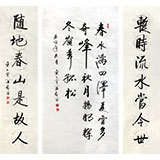 暫時流水當今世
春水满四澤夏雲多
奇峰秋月揚明輝
冬嶺秀孤松
随地春山是故人